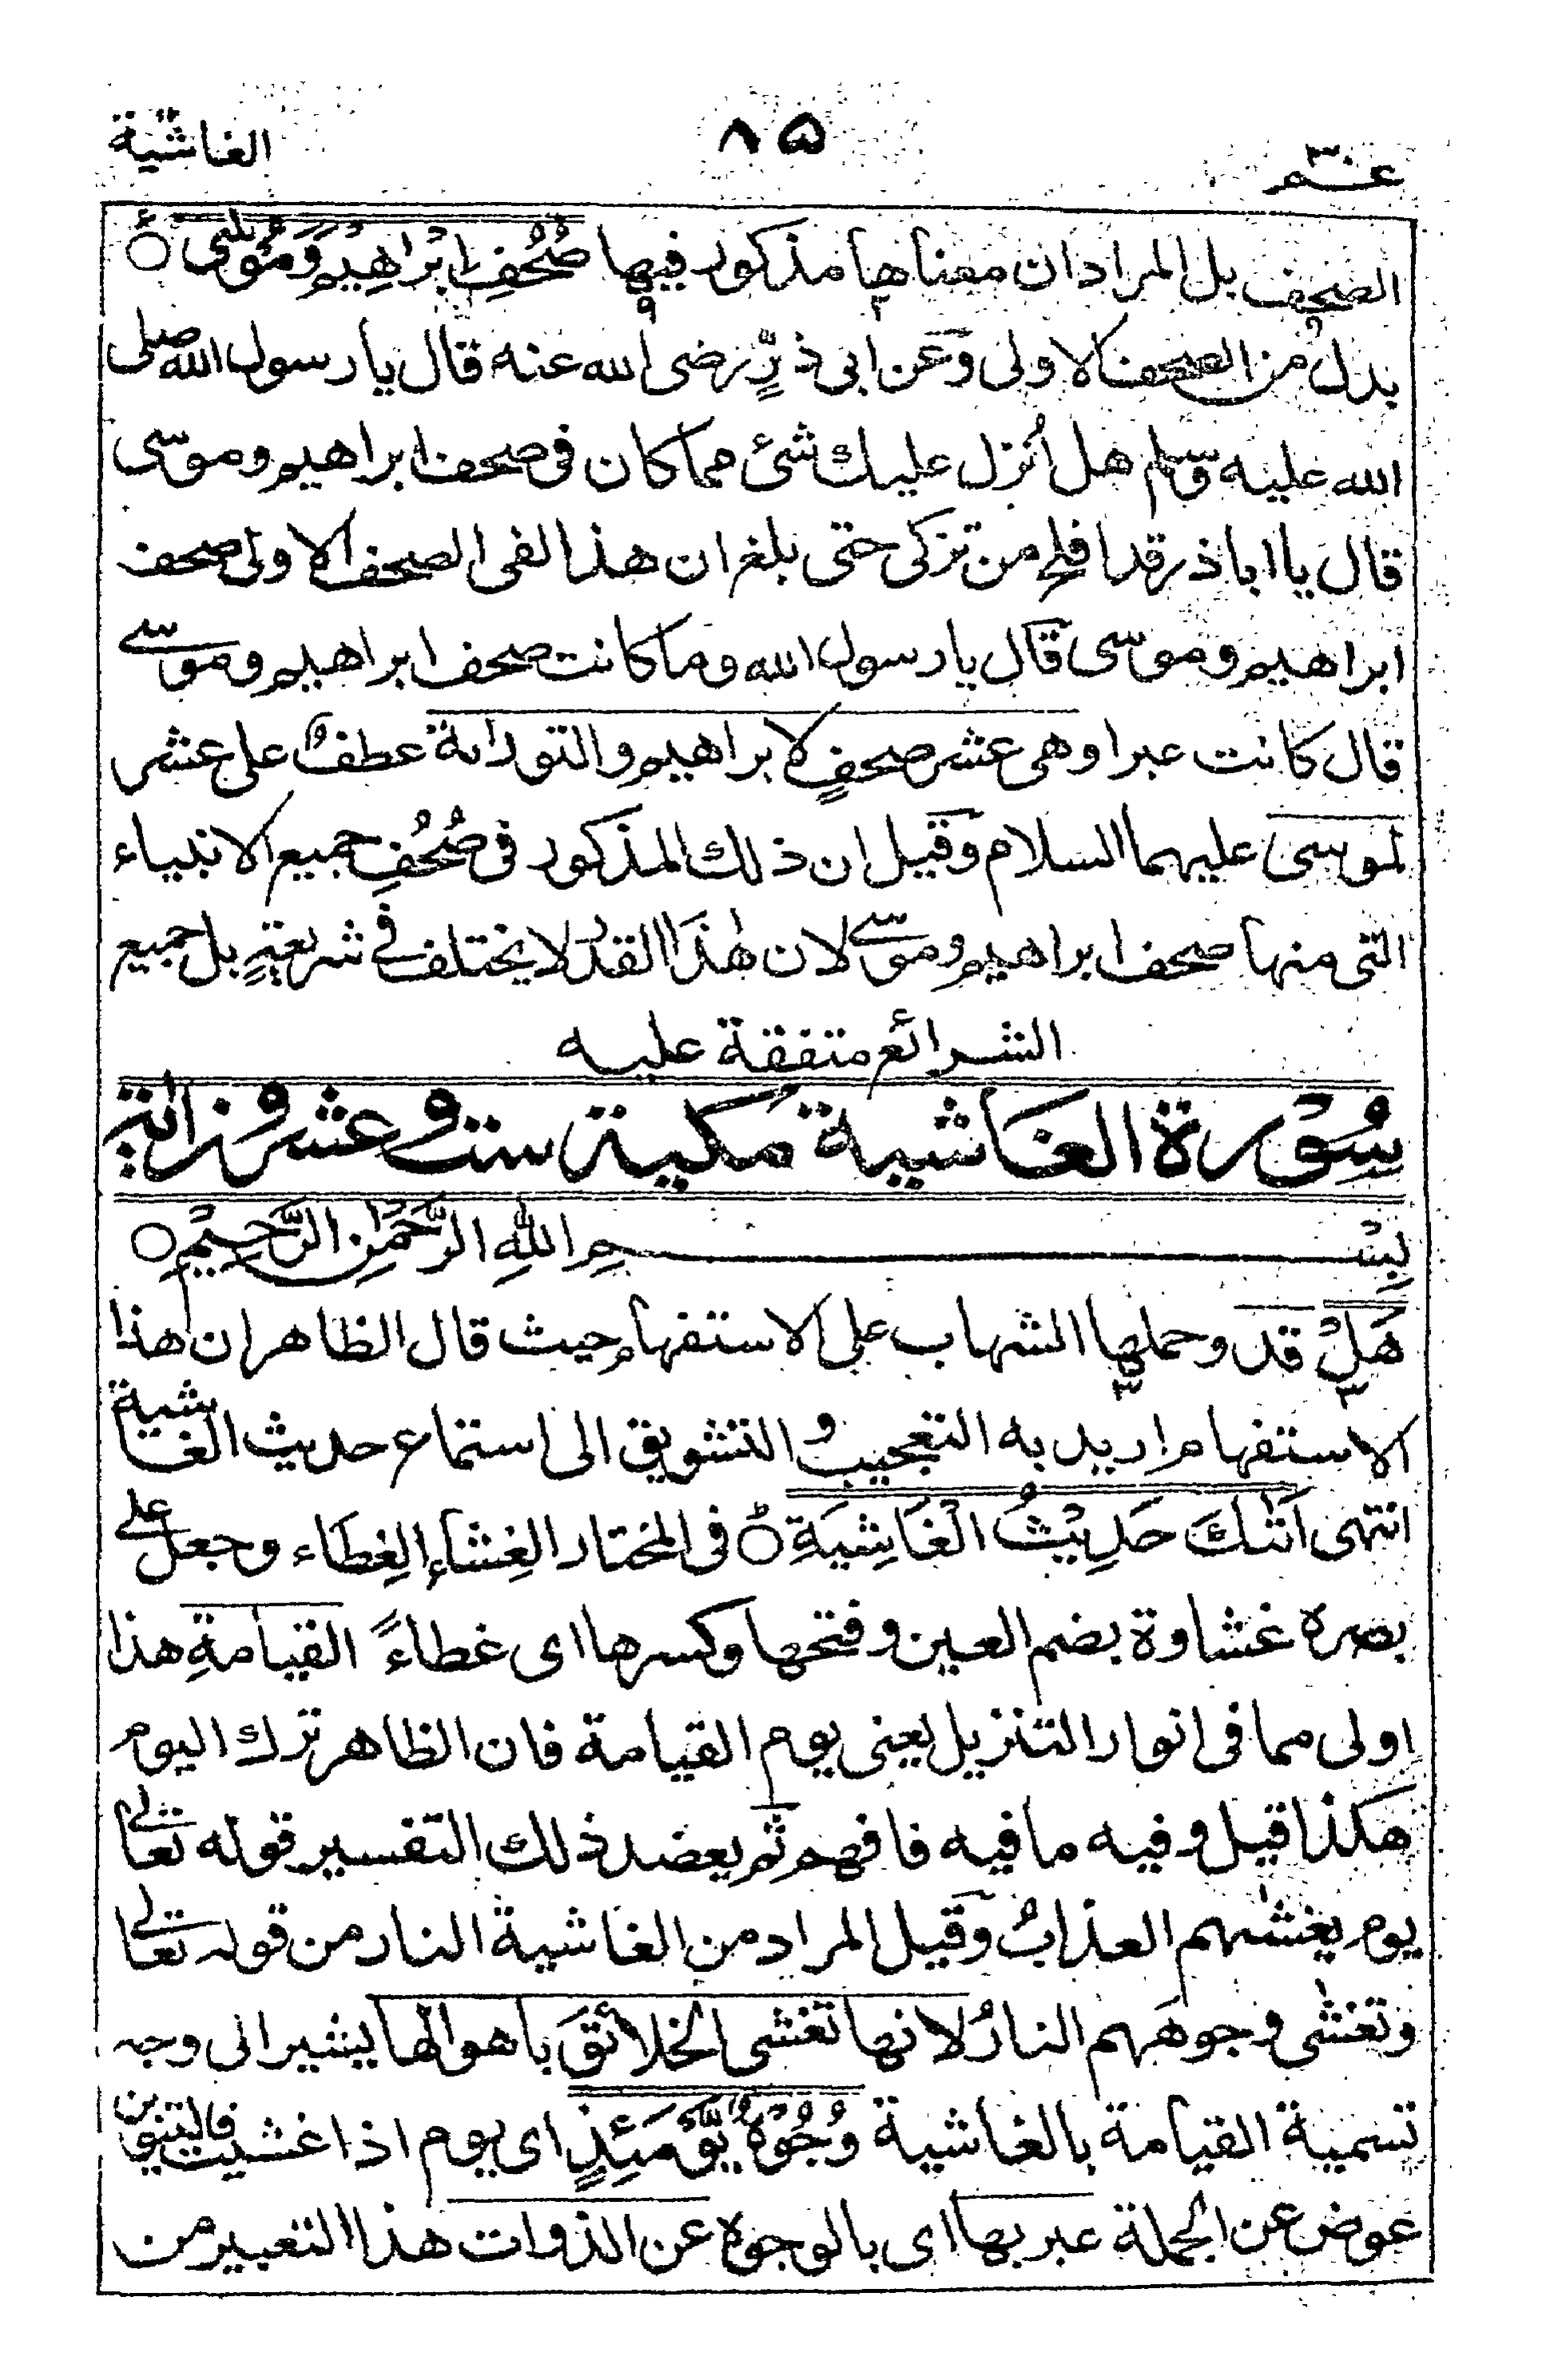 عم ٣٠
٨٥
الغاشية
الصحف بل المراد ان معناها مذكور فيها صُحُفِ اِبْرَاهِيْمَ وَمُوْسٰى ○
بدل من الصحف الاولى وعن ابى ذرٍّ رضى الله عنه قال يا رسول الله صلى
الله عليه وسلم هل اُنزل عليك شئ مما كان فى صحف ابراهيم وموسى
قال يا ابا ذر قد افلح من تزكى حتى بلغ ان هذا لفى الصحف الاولى صحف
ابراهيم وموسى قال يا رسول الله وما كانت صحف ابراهيم وموسى
قال كانت عبرا وهى عشر صحفٍ لابراهيم والتوراة عطفٌ على عشر
لموسى عليهما السلام وقيل ان ذلك المذكور فى صُحُفِ جميع الانبياء
التى منها صحف ابراهيم وموسى لان هٰذا القدر لا يختلف فى شريعةٍ بل جميع
الشرائع متفقة عليه
سُوْرة الغَاشية مكية ست وعشرون اٰية
بِسْمِ اللّٰهِ الرَّحْمٰنِ الرَّحِيْمِ ○
هَلْ قد وحملها الشهاب على الاستفهام حيث قال الظاهر ان هذا
الاستفهام اريد به التعجيب والتشويق الى استماع حديث الغاشية
انتهى اَتٰىكَ حَدِيْثُ الْغَاشِيَةِ ○ فى المختار الغِشَاء الغِطَاء وجعل على
بصره غشاوة بضم العين وفتحها وكسرها اى غطاءً القيامةِ هذا
اولى مما فى انوار التنزيل يعنى يوم القيامة فان الظاهر ترك اليوم
هكذا قيل وفيه ما فيه فافهم ثم يعضد ذلك التفسير قوله تعالى
يوم يغشٰهم العذابُ وقيل المراد من الغاشية النار من قوله تعالى
وتغشٰى وجوهَهم النارُ لانها تغشى الخلائقَ باهوالها يشير الى وجه
تسمية القيامة بالغاشية وُجُوْهٌ يَّوْمَئِذٍ اى يوم اذا غشيت فالتنوين
عوض عن الجملة عبر بها اى بالوجوه عن الذوات هذا التعبير من